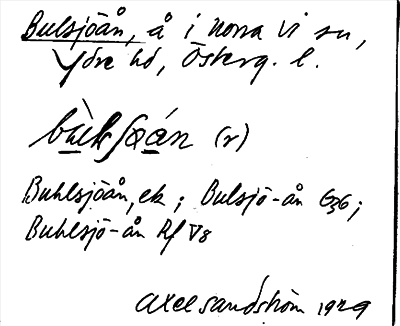 Bulsjöån, å i norra Vi sn,
Ydre hd, Österg. l.
(r)
Buhlsjöån, ek ; Bulsjö-ån G36 ;
Buhlsjö-ån Rf V8
Axel Sandström 1929